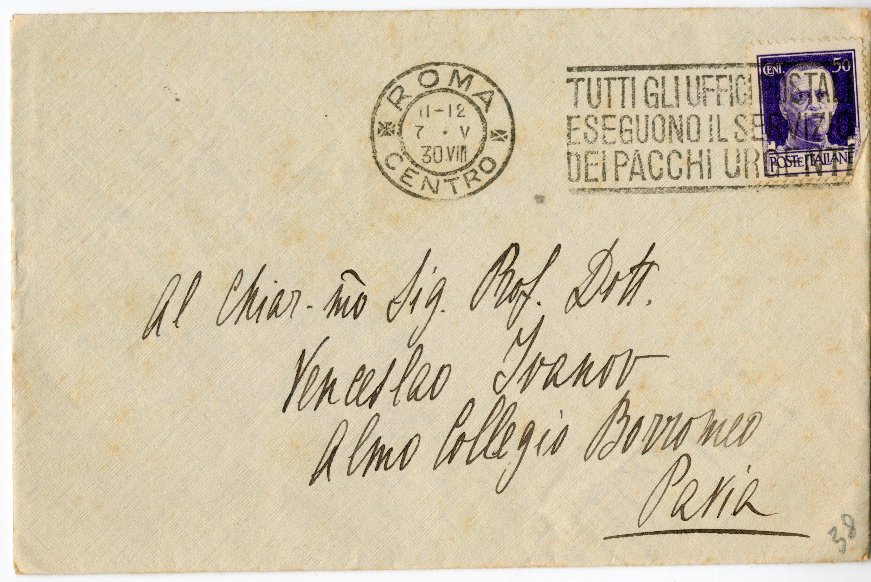 ROMA
11-12
7 · V
30 VIII
CENTRO
TUTTI GLI UFFICI POSTALI
ESEGUONO IL SERVIZIO
DEI PACCHI URGENTI
CENT. 50
POSTE ITALIANE
Al Chiar-mo Sig. Prof. Dott.
Venceslao Ivanov
Almo Collegio Borromeo
Pavia
38